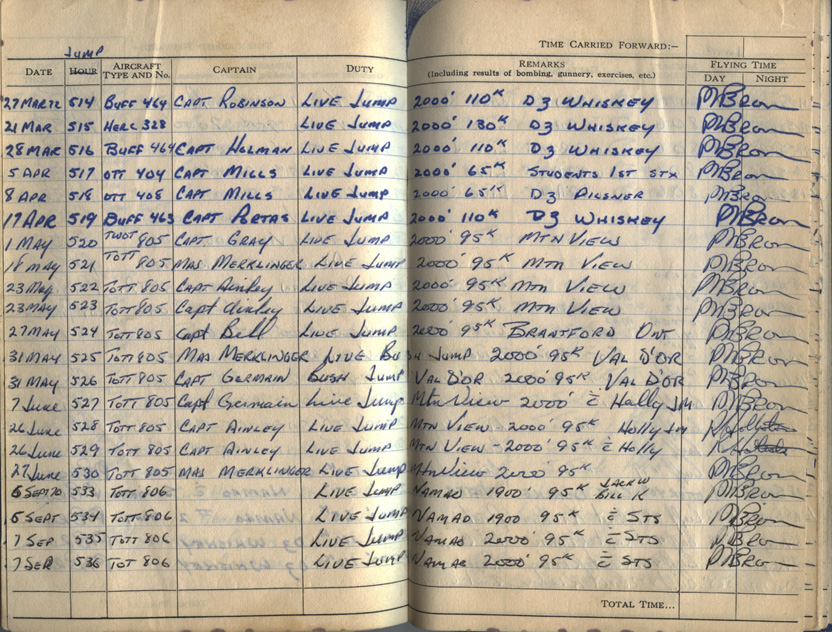 TIME CARRIED FORWARD:–
Jump
DATE HOUR AIRCRAFT TYPE AND No. CAPTAIN DUTY REMARKS (Including results of bombing, gunnery, exercises, etc.) FLYING TIME DAY NIGHT
27 MAR 72 514 BUFF 464 CAPT ROBINSON LIVE JUMP 2000' 110K DZ WHISKEY
21 MAR 515 HERC 328 LIVE JUMP 2000' 130K DZ WHISKEY
28 MAR 516 BUFF 464 CAPT HOLMAN LIVE JUMP 2000' 110K DZ WHISKEY
5 APR 517 OTT 404 CAPT MILLS LIVE JUMP 2000' 65K STUDENTS 1ST STX
8 APR 518 OTT 408 CAPT MILLS LIVE JUMP 2000' 65K DZ PILSNER
17 APR 519 BUFF 463 CAPT PORTAS LIVE JUMP 2000' 110K DZ WHISKEY
1 MAY 520 TWOT 805 CAPT GRAY LIVE JUMP 2000' 95K MTN VIEW
18 MAY 521 TOTT 805 MAS MERKLINGER LIVE JUMP 2000' 95K MTN VIEW
23 May 522 TOTT 805 CAPT Ainley LIVE JUMP 2000' 95K MTN VIEW
23 May 523 TOTT 805 Capt Ainley LIVE JUMP 2000' 95K MTN VIEW
27 MAY 524 TOTT 805 Capt Bell LIVE JUMP 2000' 95K BRANTFORD ONT
31 MAY 525 TOTT 805 MAS MERKLINGER LIVE BUSH JUMP 2000' 95K VAL D'OR
31 MAY 526 TOTT 805 CAPT GERMAIN BUSH JUMP VAL D'OR 2000' 95K VAL D'OR
7 June 527 TOTT 805 Capt Germain Live Jump Mtn View 2000' c̄ Holly JM
26 June 528 TOTT 805 CAPT AINLEY LIVE JUMP MTN VIEW 2000' 95K Holly JM
26 June 529 TOTT 805 CAPT AINLEY LIVE JUMP MTN VIEW - 2000' 95K c̄ Holly
27 June 530 TOTT 805 MAS MERKLINGER LIVE JUMP Mtn View 2000' 95K
6 SEPT 533 TOTT 806 LIVE JUMP NAMAO 1900' 95K JACK W BILL K
6 SEPT 534 TOTT 806 LIVE JUMP NAMAO 1900 95K c̄ STS
7 SEP 535 TOTT 806 LIVE JUMP NAMAO 2000' 95K c̄ STS
7 SEP 536 TOT 806 LIVE JUMP NAMAO 2000' 95K c̄ STS
TOTAL TIME...